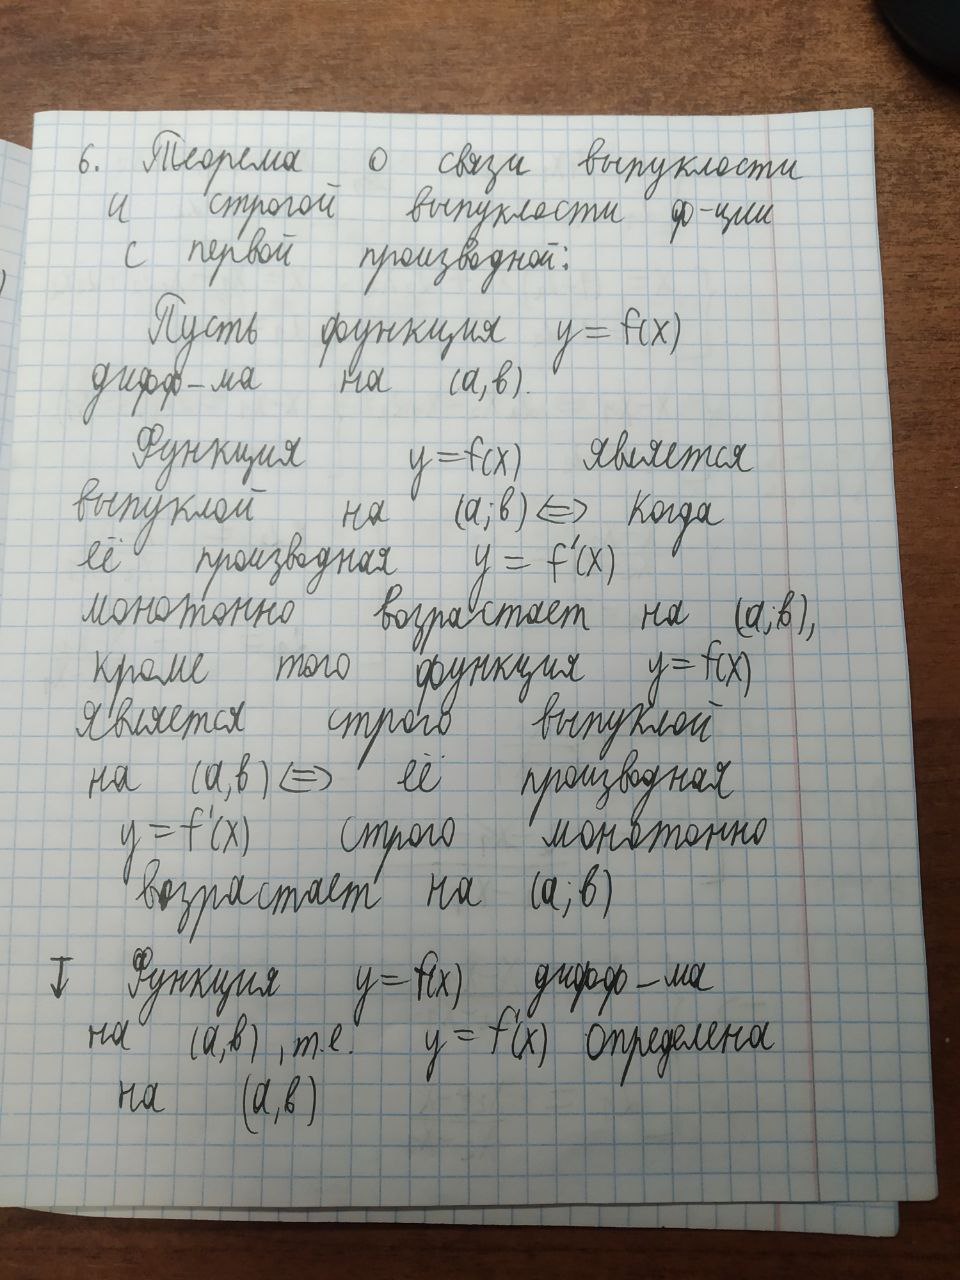 6. Теорема о связи выпуклости
и строгой выпуклости ф-ции
с первой производной:
Пусть функция y = f(x)
дифф-ма на (a,b).
Функция y = f(x) является
выпуклой на (a;b) <=> когда
её производная y = f'(x)
монотонно возрастает на (a;b),
кроме того функция y = f(x)
является строго выпуклой
на (a,b) <=> её производная
y = f'(x) строго монотонно
возрастает на (a;b)
Функция y = f(x) дифф-ма
на (a,b), т.е. y = f'(x) определена
на (a,b)